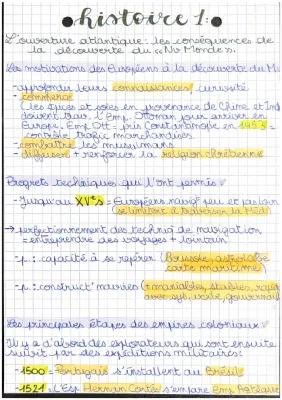 histoire 1:
L'ouverture atlantique: les conséquences de
la découverte du «Nv Monde».
Les motivations des Européens à la découverte du M
- approfondir leurs connaissances, curiosité
- commerce
(les épices et soies en provenance de Chine et Ind
doivent trav. l'Emp. Ottoman pour arriver en
Europe. Emp. Ott = pris Constantinople en 1453
contrôle trafic marchandises
- combattre les musulmans
- diffuser + renforcer la religion chrétienne
Progrets techniques qui l'ont permis
- Jusqu'au XVe s = Européens navig peu et pas loin
se limitent à traverser la Méd
→ perfectionnement des techni de navigation
= entreprendre des voyages + lointain
- p.: capacité à se repérer (Boussole, astrolabe
carte maritime)
- p.: construct° navires (+ maniables, stables, rapi
avec voile, gouvernail
Les principales étapes des empires coloniaux
Il y a d'abord des explorateurs qui sont ensuite
suivit par des expéditions militaires:
- 1500 = Portugais s'installent au Brésil
- 1521 = L'Esp Hernan Cortés s'empare Emp Aztèque